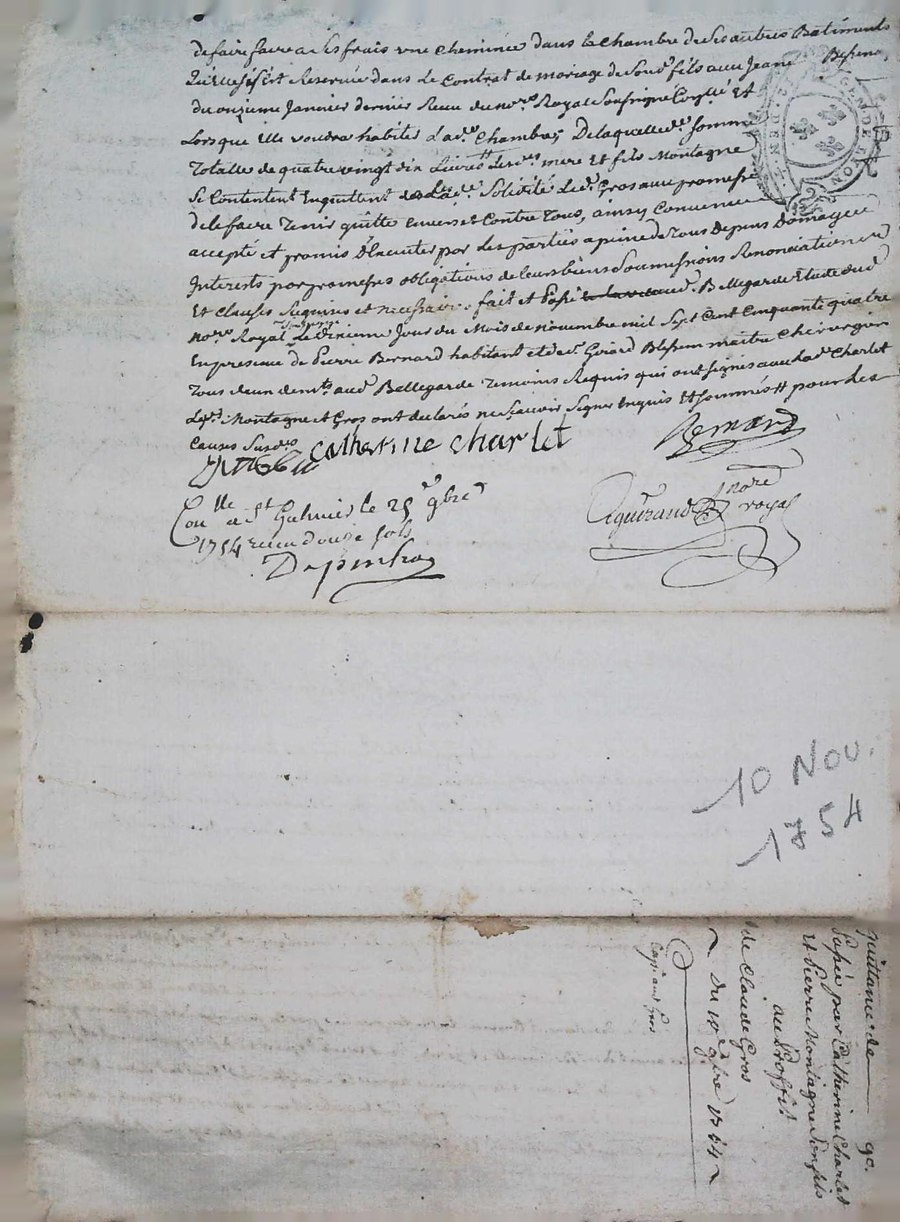 de faire faire a ses frais une cheminée dans la chambre de ses autres Batiments
qu'elle s'est Reservée dans Le Contrat de mariage de Son fils avec Jeanne Bessenay
du onzieme Janvier dernier Receu du no.re Royal Soussigne Et
Lorsque Elle voudra habiter Lad.e Chambre, De laquelle d.e somme
Totalle de quatre vingt dix Livres Les d. mere Et fils Montagne
Se Contentent Enquittent Led. Gros avec promesse
de le faire Tenir quitte Envers et Contre Tous, ainsy Convenu
accepté et promis D'Executer par Les parties a peine de Tous Depens Domages
Interests par promesses obligations de leurs biens Soumissions Renonciations
Et Clauses Requises et necessaires fait et Passé aud. Bellegarde Etude dud.
no.re Royal Le Dixieme Jour du Mois de novembre mil Sept Cent Cinquante quatre
En presence de Pierre Bernard habitant et de s.r Girard Blesson maitre Chirurgien
Tous deux dem.ts aud. Bellegarde Temoins Requis qui ont signés avec Lad.e Charlet
Les d. Montagne et Gros ont declarés ne scavoir Signer Enquis Et Sommés pour Les
Causes Susd.es
Catherine charlet
Bernard
Con.lle a St Galmier le 25 9bre
1754 receu douze sols
nore
royal
10 NOV.
1754
quittance de 90.
Passée par Catherine Charlet
Et Pierre Montagne Son fils
au Proffit
de Claude Gros
Du 10 9bre 1754